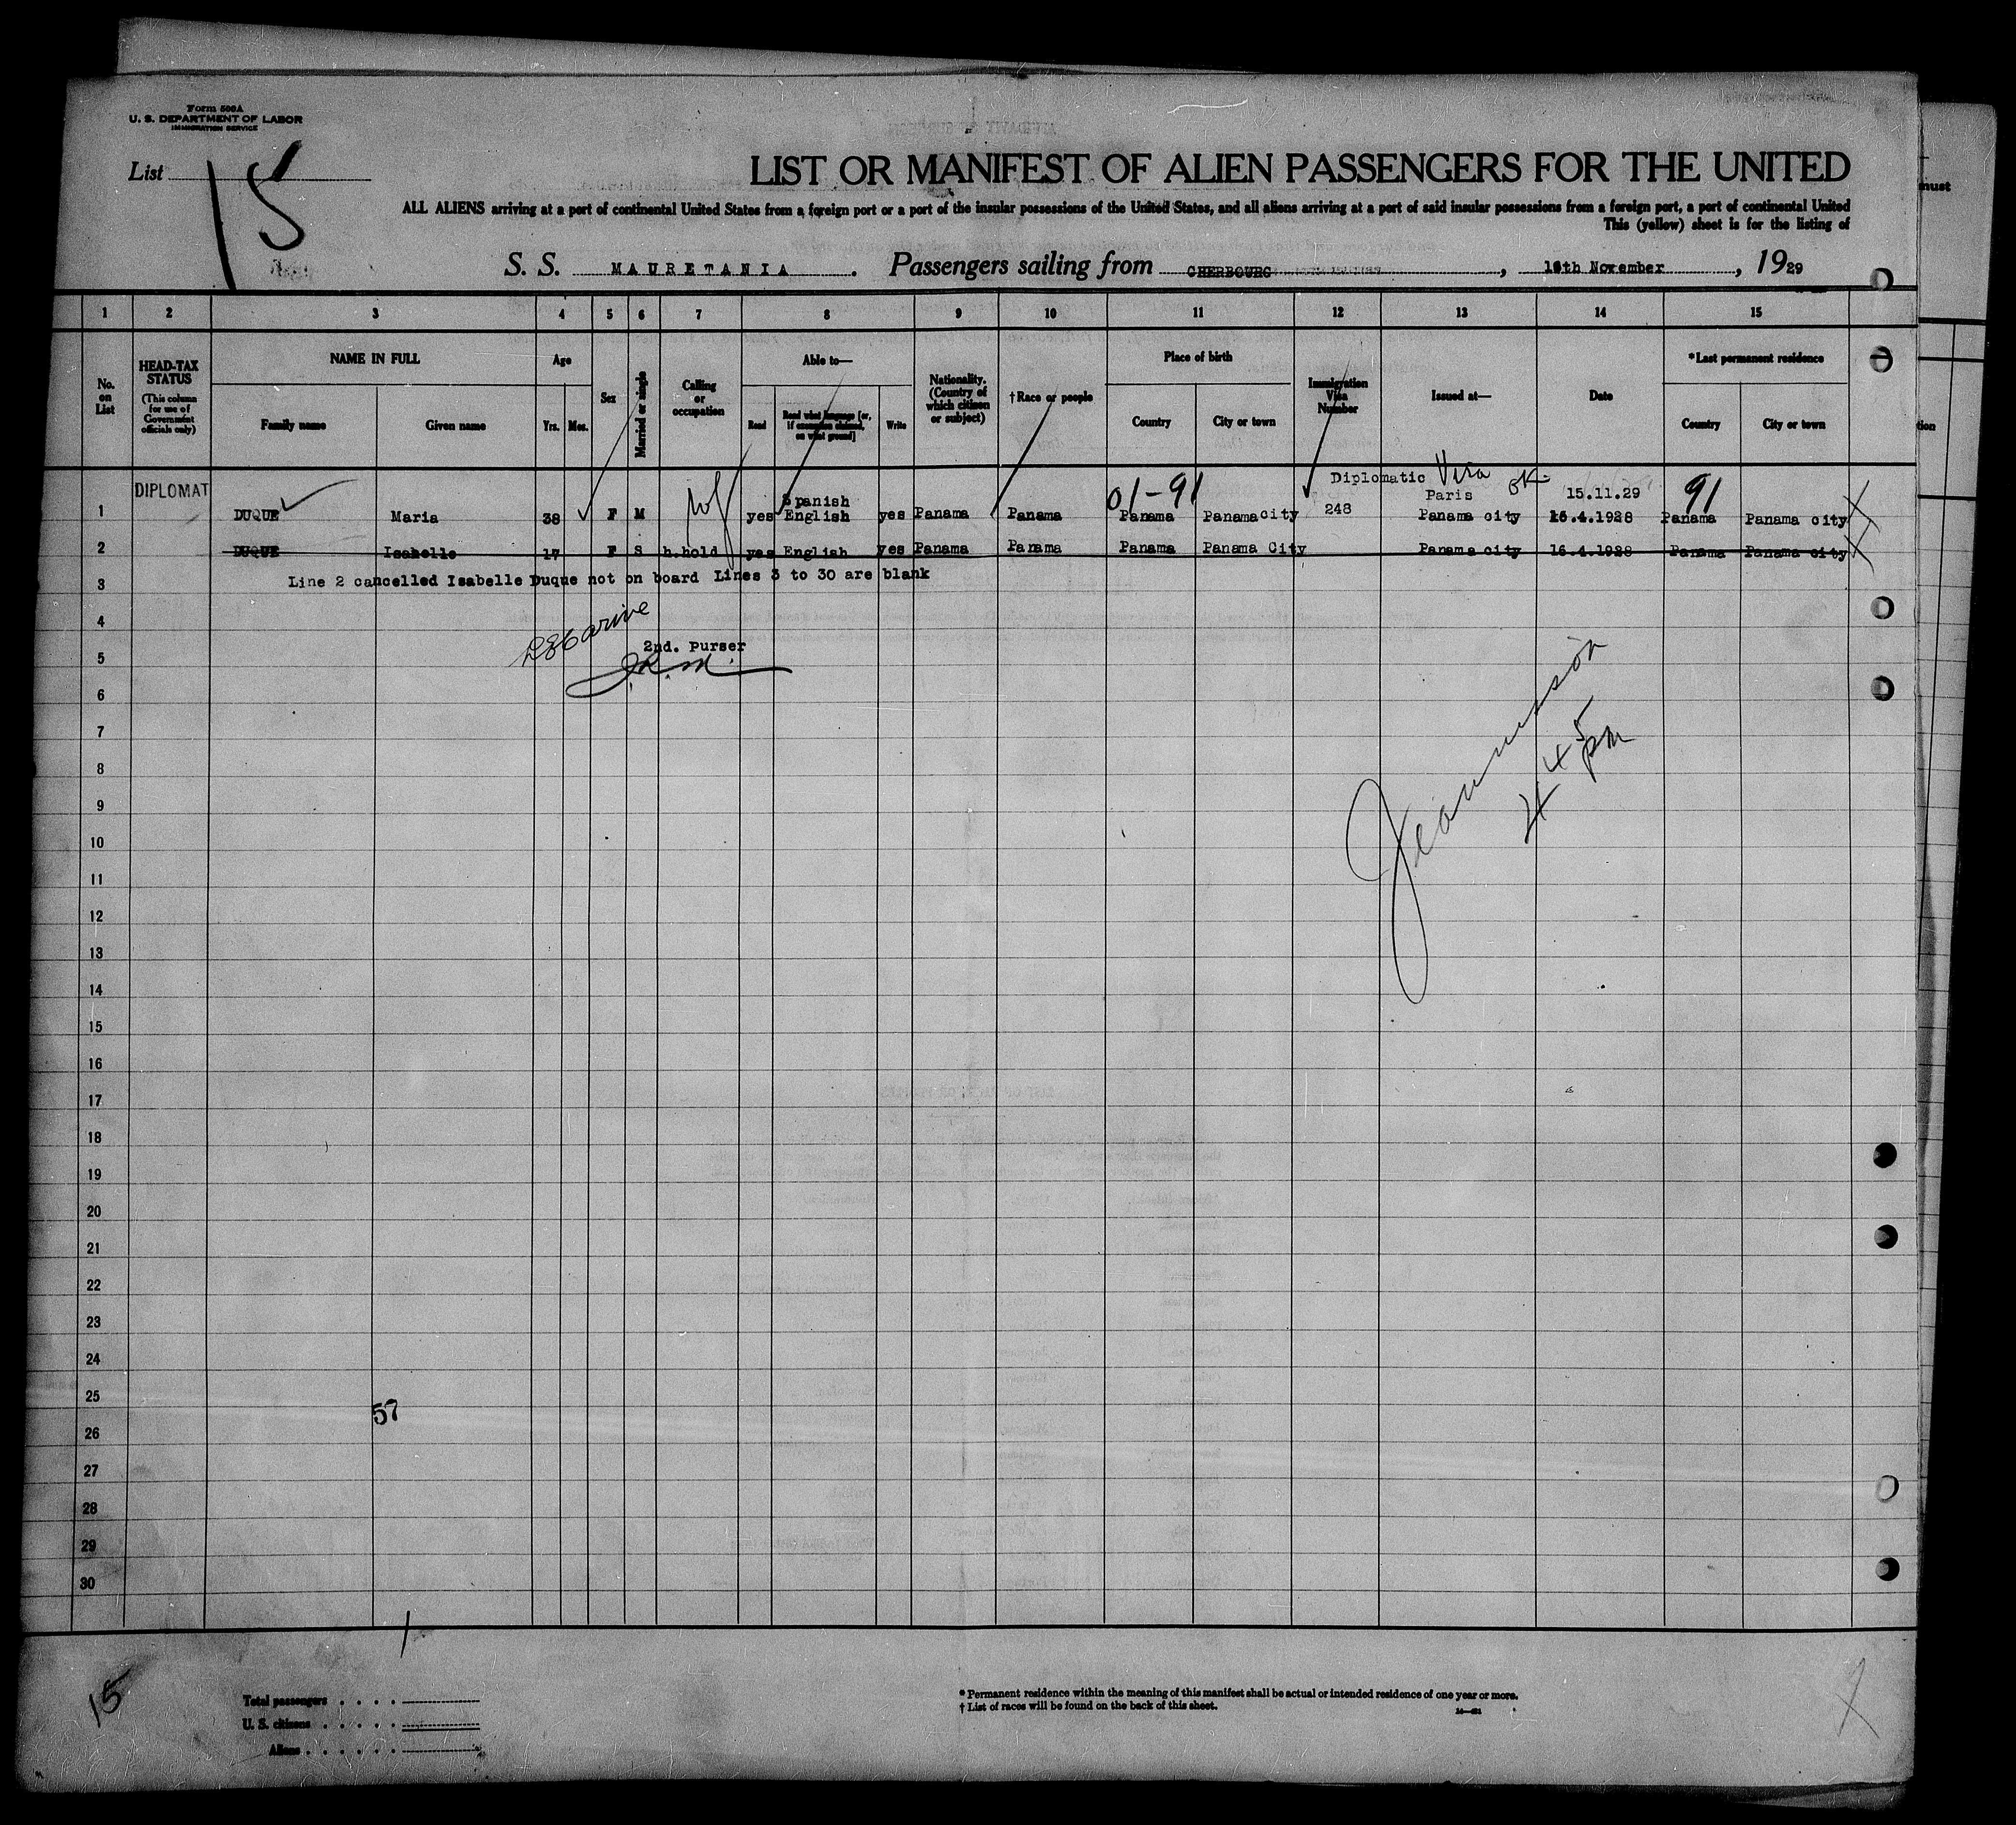 Form 500A
U. S. DEPARTMENT OF LABOR
IMMIGRATION SERVICE
List 15
LIST OR MANIFEST OF ALIEN PASSENGERS FOR THE UNITED
ALL ALIENS arriving at a port of continental United States from a foreign port or a port of the insular possessions of the United States, and all aliens arriving at a port of said insular possessions from a foreign port, a port of continental United
This (yellow) sheet is for the listing of
S. S. MAURETANIA. Passengers sailing from CHERBOURG, November, 1929
1 2 3 4 5 6 7 8 9 10 11 12 13 14 15
No. on List
HEAD-TAX STATUS (This column for use of Government officials only)
NAME IN FULL
Family name Given name
Age
Yrs. Mos.
Sex
Married or single
Calling or occupation
Able to—
Read Read what language [or, if exemption claimed, on what ground] Write
Nationality. (Country of which citizen or subject)
†Race or people
Place of birth
Country City or town
Immigration Visa Number
Issued at—
Date
*Last permanent residence
Country City or town
DIPLOMAT Spanish 01-91 Diplomatic Visa OK Paris 15.11.29 91
1 DUQUE Maria 38 F M yes English yes Panama Panama Panama Panama city 248 Panama city 16.4.1928 Panama Panama city
2 DUQUE Isabelle 17 F S h.hold yes English yes Panama Panama Panama Panama City Panama city 16.4.1928 Panama Panama city
3 Line 2 cancelled Isabelle Duque not on board Lines 3 to 30 are blank
4
2nd. Purser
5
6
7
4 45 pm
8
9
10
11
12
13
14
15
16
17
18
19
20
21
22
23
24
25
57
26
27
28
29
30
15
Total passengers
U. S. citizens
Aliens
* Permanent residence within the meaning of this manifest shall be actual or intended residence of one year or more.
† List of races will be found on the back of this sheet.